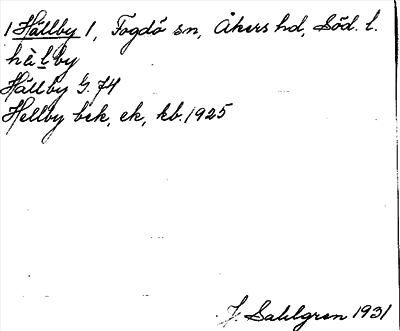 1 Hällby 1, Fogdö sn, Åkers hd, Söd. l.
hälby
Hällby G. 74
Hellby bek, ek, kb. 1925
J. Sahlgren 1931